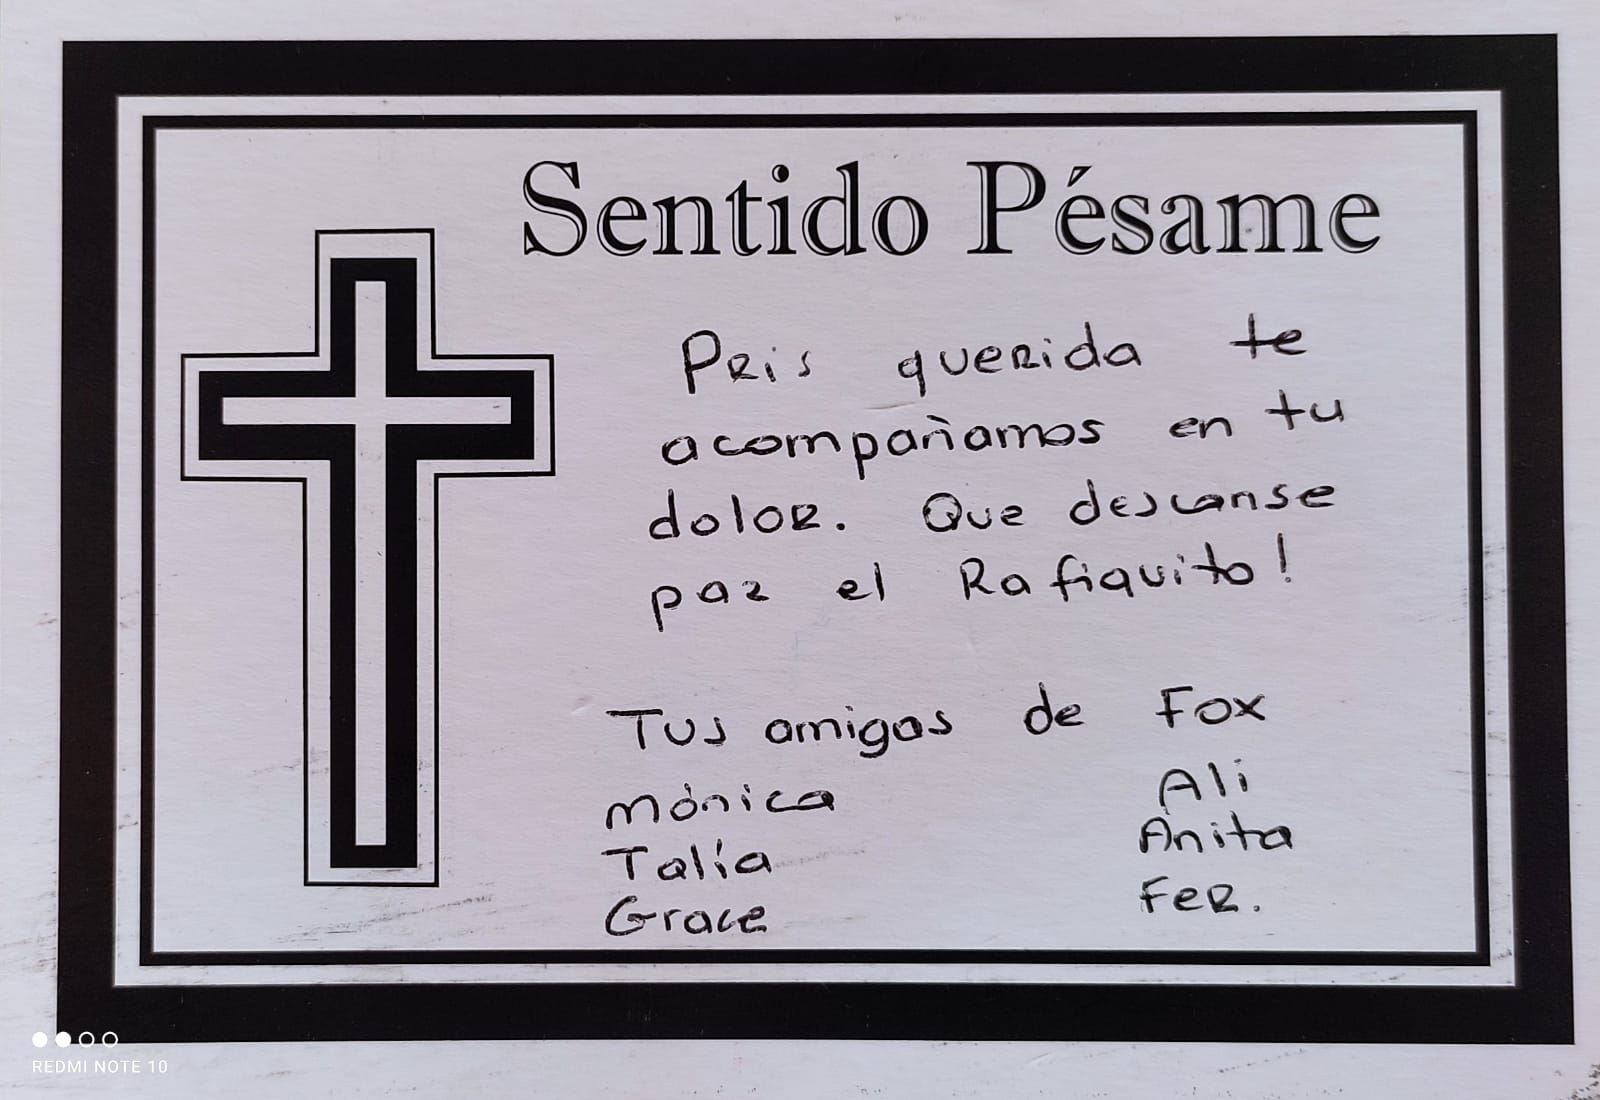 Sentido Pésame
Pris querida te
acompañamos en tu
dolor. Que descanse
paz el Rafiquito!
Tus amigos de Fox
Mónica
Talía
Grace
Ali
Anita
Fer.
REDMI NOTE 10